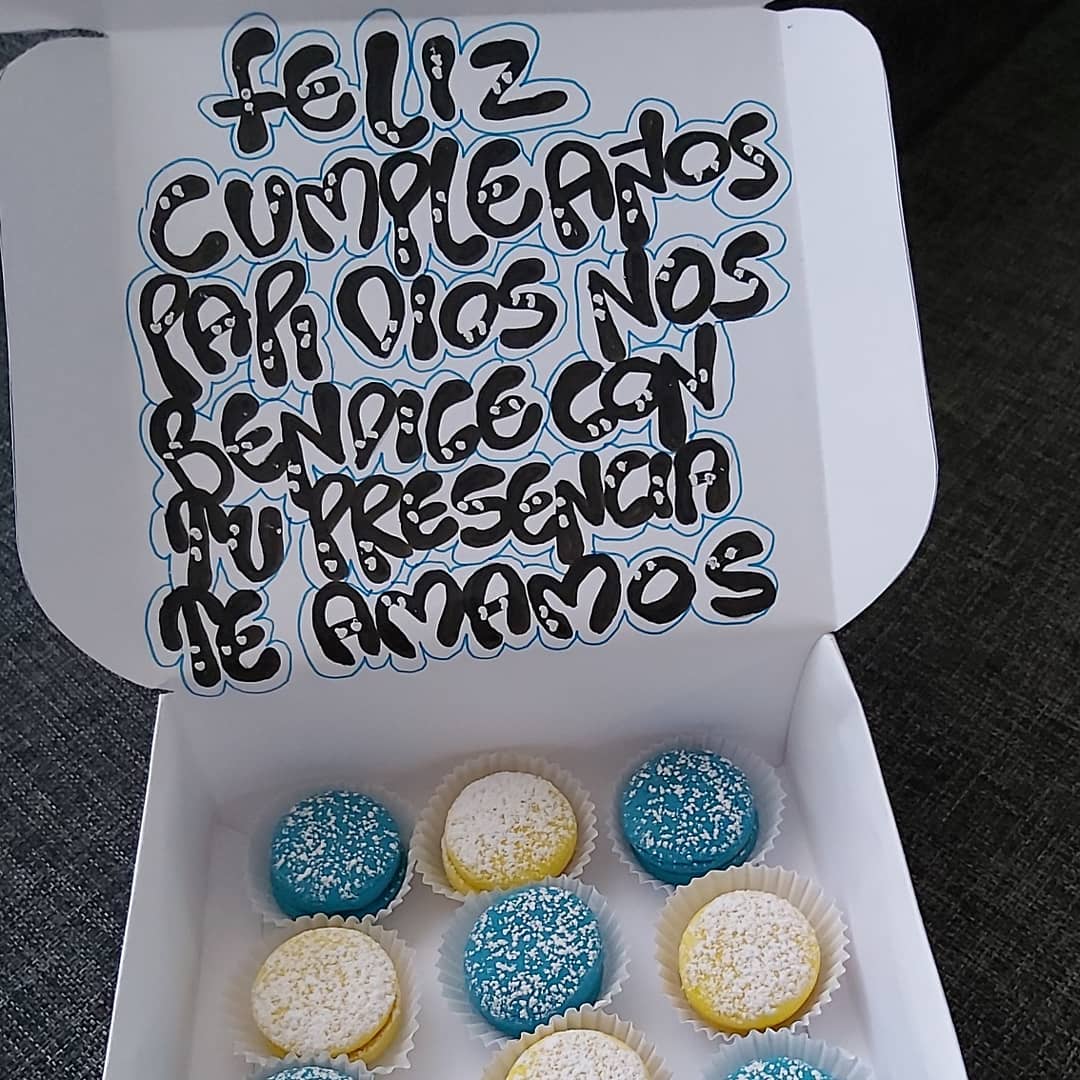 FELIZ
CUMPLEAÑOS
PAPi DiOS NOS
BENDICE CON
TU PRESENCIA
TE AMAMOS